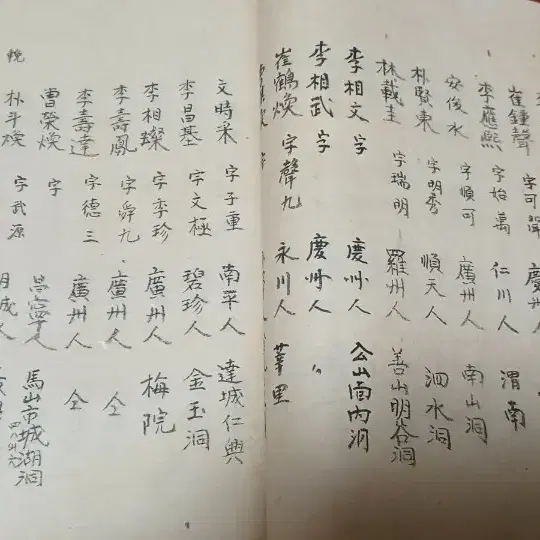 崔鍾聲 字可聲 廣
李應熙 字始萬 仁川人 渭南
安俊水 字順可 廣州人 南山洞
朴賢東 字明秀 順天人 泗水洞
林載圭 字瑞明 羅州人 善山明谷洞
李相文 字 慶州人 公山面內洞
李相武 字 慶州人 〃
崔鶴煥 字聲九 永川人 莘里
文時采 字子重 南平人 達城仁興
李昌基 字文極 碧珍人 金玉洞
李相璨 字季珍 廣州人 梅院
李壽鳳 字舜九 廣州人 仝
李壽達 字德三 廣州人 仝
曺榮煥 字 昌寧人 馬山市城湖洞
挽 朴斗煥 字武源